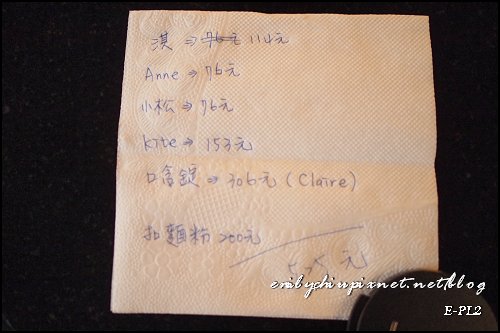 淇 ⇒ 76元 114元
Anne ⇒ 76元
小松 ⇒ 76元
kite ⇒ 153元
口含錠 ⇒ 306元 (Claire)
扣麵粉 200元
元
emilychiu.pixnet.net/blog
E-PL2